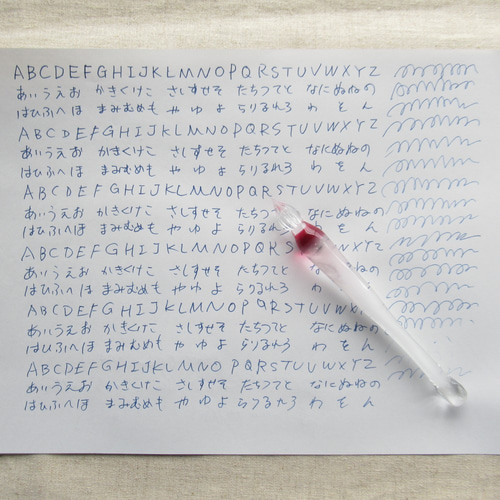 ABCDEFGHIJKLMNOPQRSTUVWXYZ
あいうえお かきくけこ さしすせそ たちつてと なにぬねの
はひふへほ まみむめも や ゆ よ らりるれろ わ を ん
ABCDEFGHIJKLMNOPQRSTUVWXYZ
あいうえお かきくけこ さしすせそ たちつてと なにぬねの
はひふへほ まみむめも や ゆ よ らりるれろ わ を ん
ABCDEFGHIJKLMNOPQRSTUVWXYZ
あいうえお かきくけこ さしすせそ たちつ なにぬねの
はひふへほ まみむめも や ゆ よ らりるれろ わ を ん
ABCDEFGHIJKLMNOPQRS UVWXYZ
あいうえお かきくけこ さしすせそ たちつてと なにぬねの
はひふへほ まみむめも や ゆ よ らりるれろ わ を ん
ABCDEFGHIJKLMNOPQRSTUVWX
あいうえお かきくけこ さしすせそ たちつてと なにぬねの
はひふへほ まみむめも や ゆ よ らりるれろ わ を ん
ABCDEFGHIJKLMNOPQRSTUVWXYZ
あいうえお かきくけこ さしすせそ たちつてと なにぬねの
はひふへほ まみむめも や ゆ よ らりるれろ わ を ん